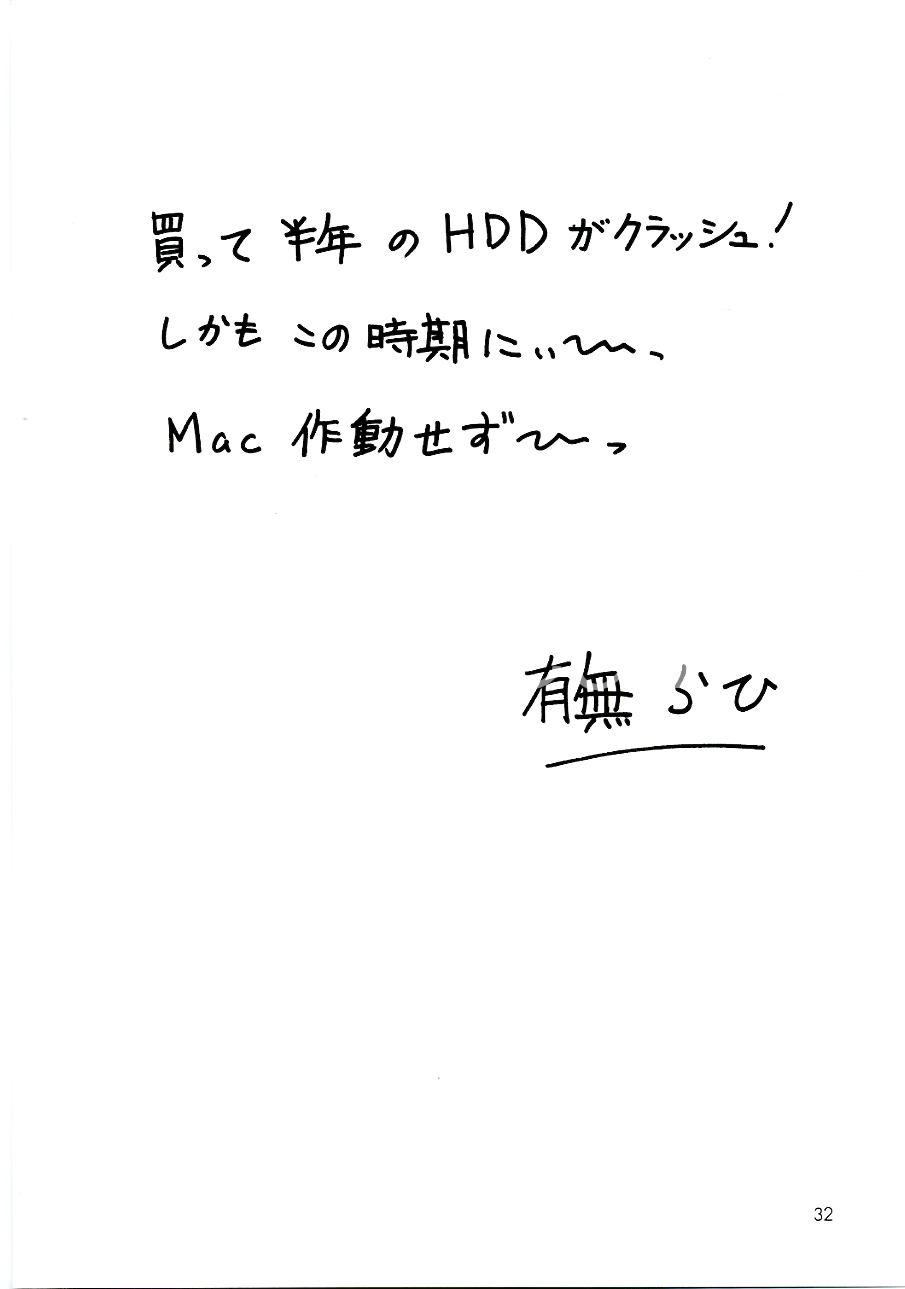 買って 半年 の HDD がクラッシュ!
しかも この 時期にぃぃ〜〜っ
Mac 作動せず〜〜っ
有無 らひ
32